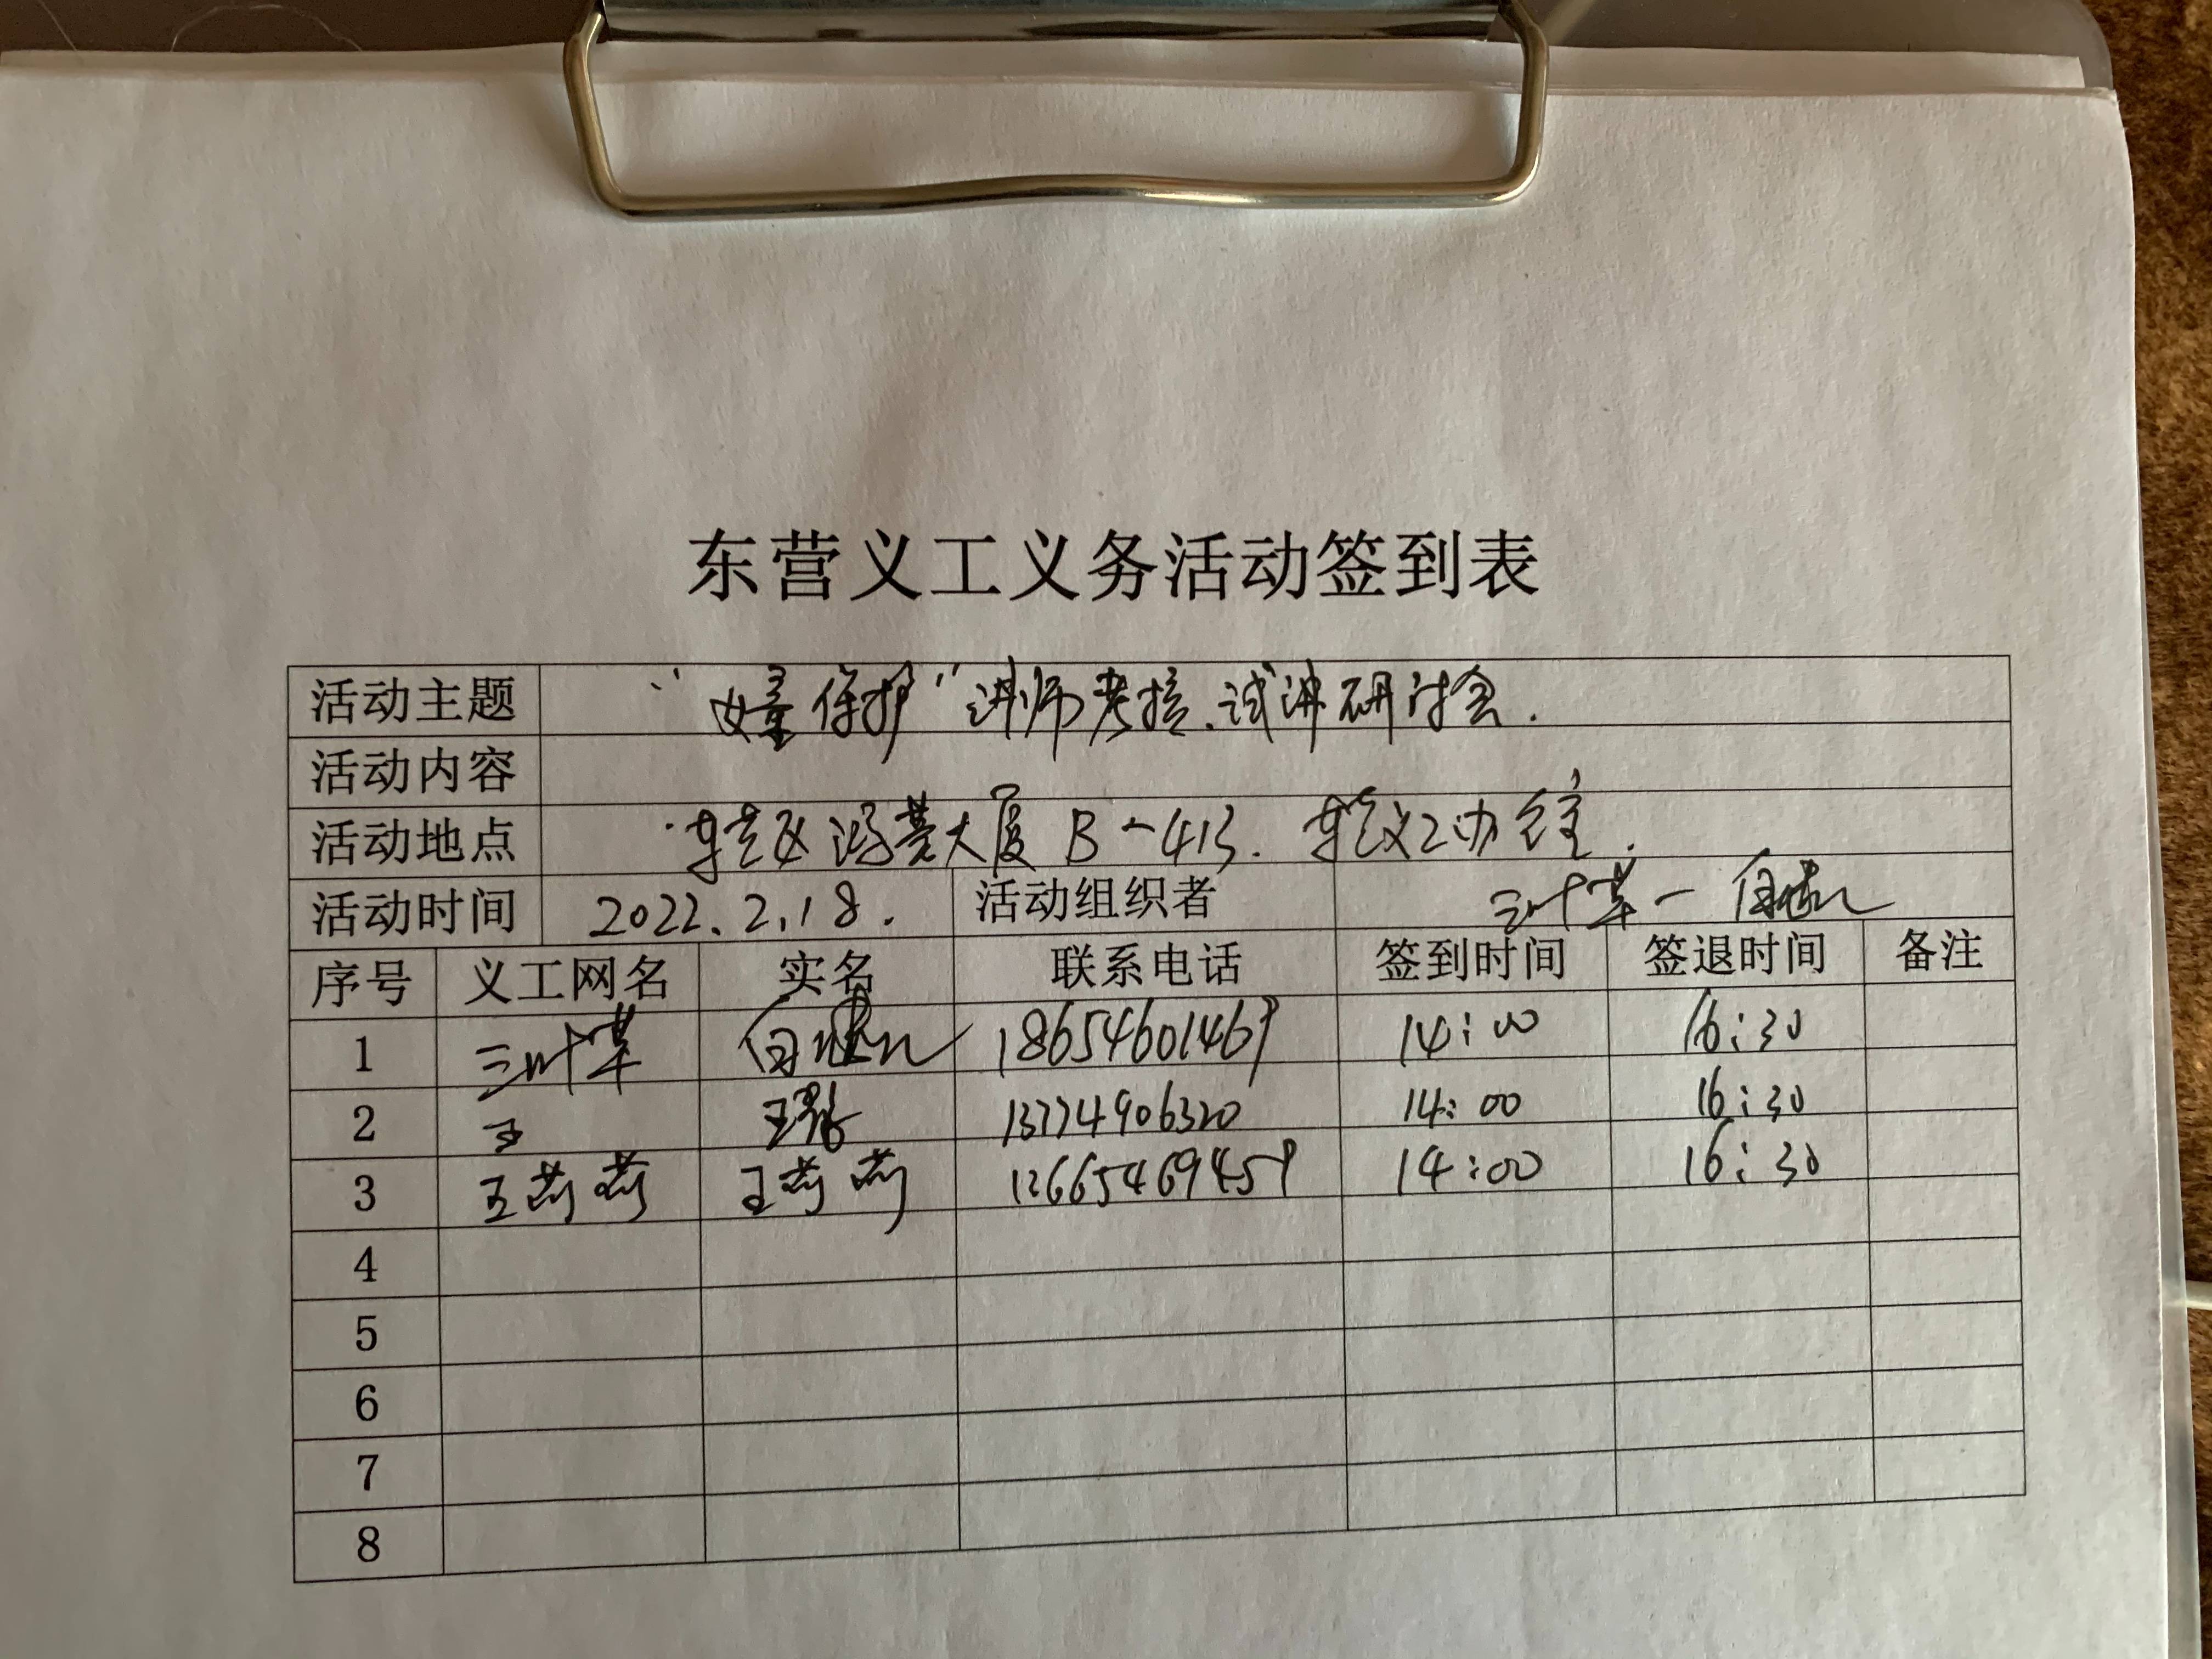 东营义工义务活动签到表
活动主题 “女童保护”讲师考核、试讲研讨会.
活动内容
活动地点 东营区鸿营大厦 B-413. 东营义工办公室.
活动时间 2022.2.18. 活动组织者 三叶草—
序号 义工网名 实名 联系电话 签到时间 签退时间 备注
1 三叶草 18654601469 14:00 16:30
2 王 13774906320 14:00 16:30
3 王莉莉 王莉莉 14:00 16:30
4
5
6
7
8